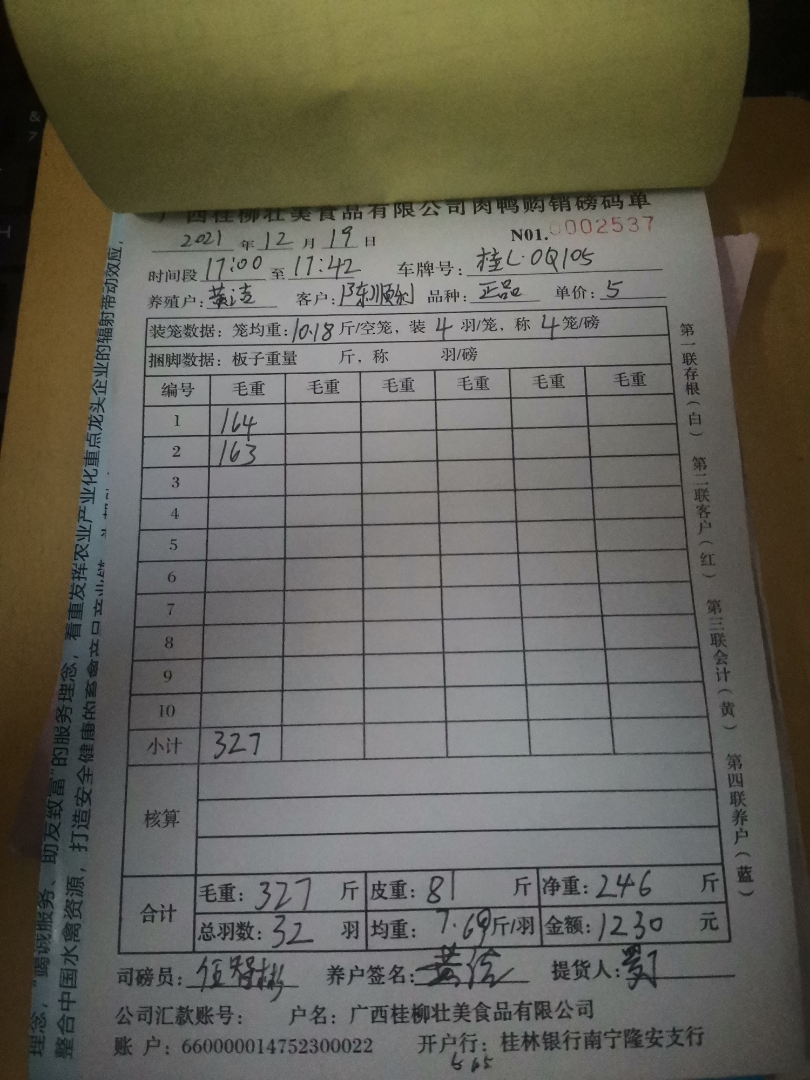 广西桂柳壮美食品有限公司肉鸭购销磅码单
2021 年 12 月 19 日 N01.0002537
时间段 17:00 至 17:42 车牌号: 桂L·0Q105
养殖户: 黄洁 客户: 陈顺利 品种: 正品 单价: 5
装笼数据: 笼均重: 10.18 斤/空笼, 装 4 羽/笼, 称 4 笼/磅
捆脚数据: 板子重量 斤, 称 羽/磅
编号 毛重 毛重 毛重 毛重 毛重 毛重
1 164
2 163
3
4
5
6
7
8
9
10
小计 327
核算
合计 毛重: 327 斤 皮重: 81 斤 净重: 246 斤
总羽数: 32 羽 均重: 7.69 斤/羽 金额: 1230 元
司磅员: 养户签名: 黄洁 提货人:
公司汇款账号: 户名: 广西桂柳壮美食品有限公司
账 户: 660000014752300022 开户行: 桂林银行南宁隆安支行
第一联存根(白) 第二联客户(红) 第三联会计(黄) 第四联养户(蓝)
理念, "竭诚服务、助友致富"的服务理念, 着重发挥农业产业化重点龙头企业的辐射带动效应,
整合中国水禽资源, 打造安全健康的畜禽产品产业链
&
7